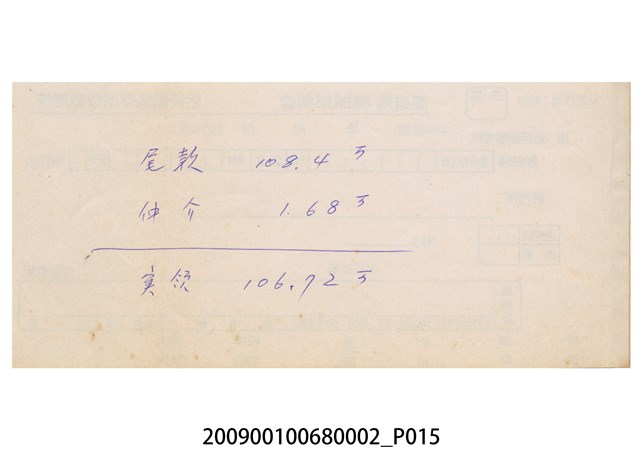 尾款 108.4万
仲介 1.68万
实领 106.72万
200900100680002_P015